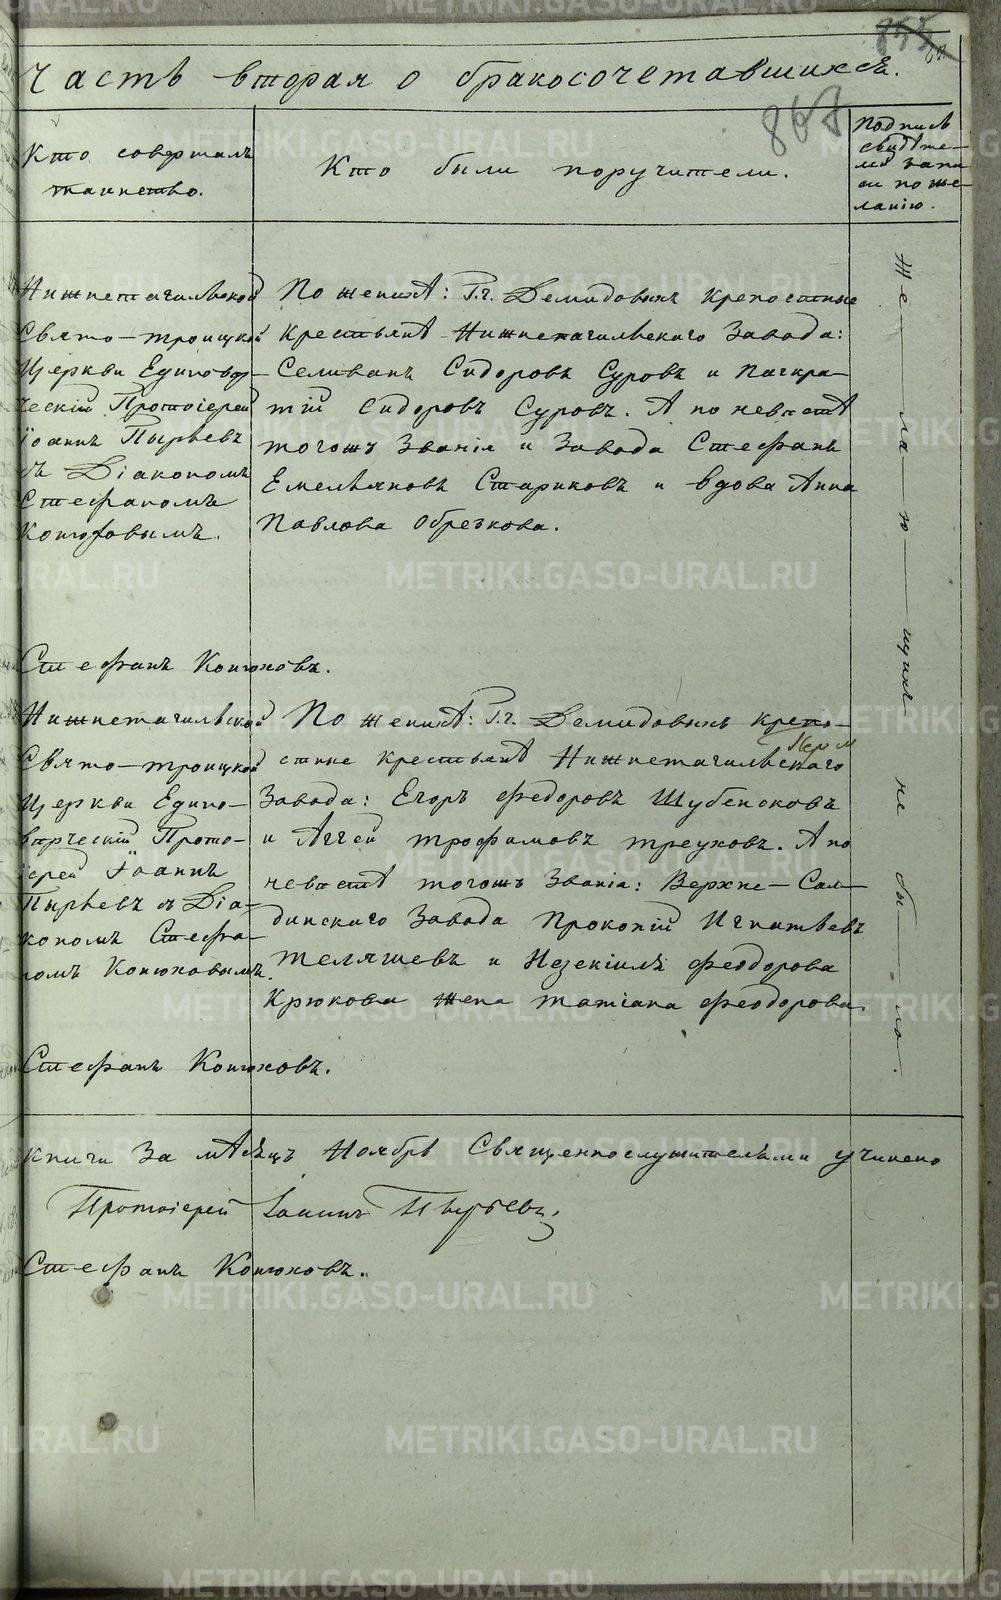 Часть вторая о бракосочетавшихся.
867
Кто совершалъ
таинство.
Кто были поручители.
Подпись
свидѣте-
лей запи
си по же-
ланію.
Нижнетагильской
Свято-троицкой
Церкви Единовѣр-
ческій Протоіерей
Іоаннъ Пырьевъ
съ Діакономъ
Стефаномъ
Конюховымъ.
По женихѣ: Г.г. Демидовыхъ крепостные
крестьянѣ Нижнетагильскаго Завода:
Селиванъ Сидоровъ Суровъ и Панкра-
тій Сидоровъ Суровъ. А по невѣстѣ
тогожъ Званія и Завода Стефанъ
Емельяновъ Стариковъ и вдова Анна
Павлова Обрезкова.
Стефанъ Конюховъ.
Нижнетагильской
Свято-троицкой
Церкви Едино-
вѣрческій Прото-
іерей Іоаннъ
Пырьевъ съ Діа-
кономъ Стефа-
номъ Конюховымъ.
По женихѣ: Г.г. Демидовыхъ крепо-
стные крестьянѣ Нижнетагильскаго
Завода: Егоръ Федоровъ Шубенковъ
и Аггей трофимовъ треуховъ. А по
невѣстѣ тогожъ Званіа: Верхне-Сал-
динскаго Завода Прокопій Игнатьевъ
теляшевъ и Иезекіилъ Феодорова
Крюкова жена татіана Феодорова.
Стефанъ Конюховъ.
Желающихъ не было.
книги За мѣсяцъ Ноябрь Священнослужителями учинено
Протоіерей Іоаннъ Пырьевъ.
Стефанъ Конюховъ.
METRIKI.GASO-URAL.RU